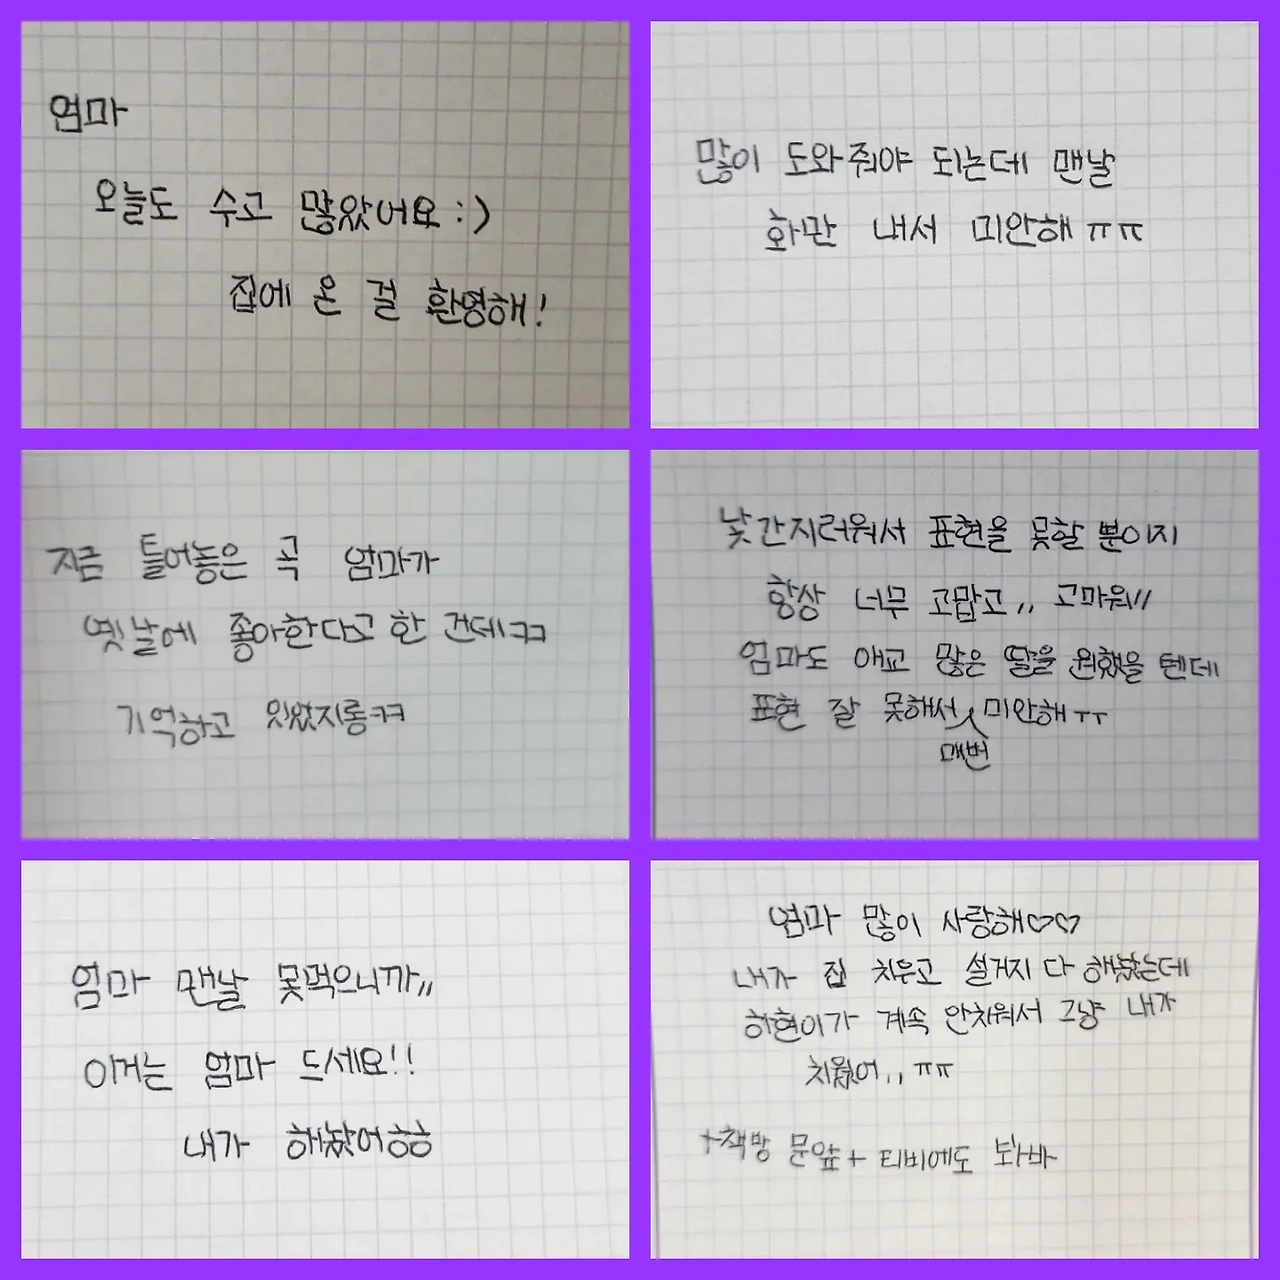 엄마
오늘도 수고 많았어요 :)
집에 온 걸 환영해!
많이 도와줘야 되는데 맨날
화만 내서 미안해 ㅠㅠ
지금 틀어놓은 곡 엄마가
옛날에 좋아한다고 한 건데ㅋㅋ
기억하고 있었지롱ㅋㅋ
낯간지러워서 표현을 못할 뿐이지
항상 너무 고맙고,, 고마워//
엄마도 애교 많은 딸을 원했을 텐데
표현 잘 못해서 미안해 ㅜㅜ
매번
엄마 맨날 못먹으니까,,
이거는 엄마 드세요!!
내가 해놨어ㅎㅎ
엄마 많이 사랑해♡♡
내가 집 치우고 설거지 다 해놨는데
하현이가 계속 안치워서 그냥 내가
치웠어,, ㅠㅠ
+책방 문앞 + 티비에도 봐바